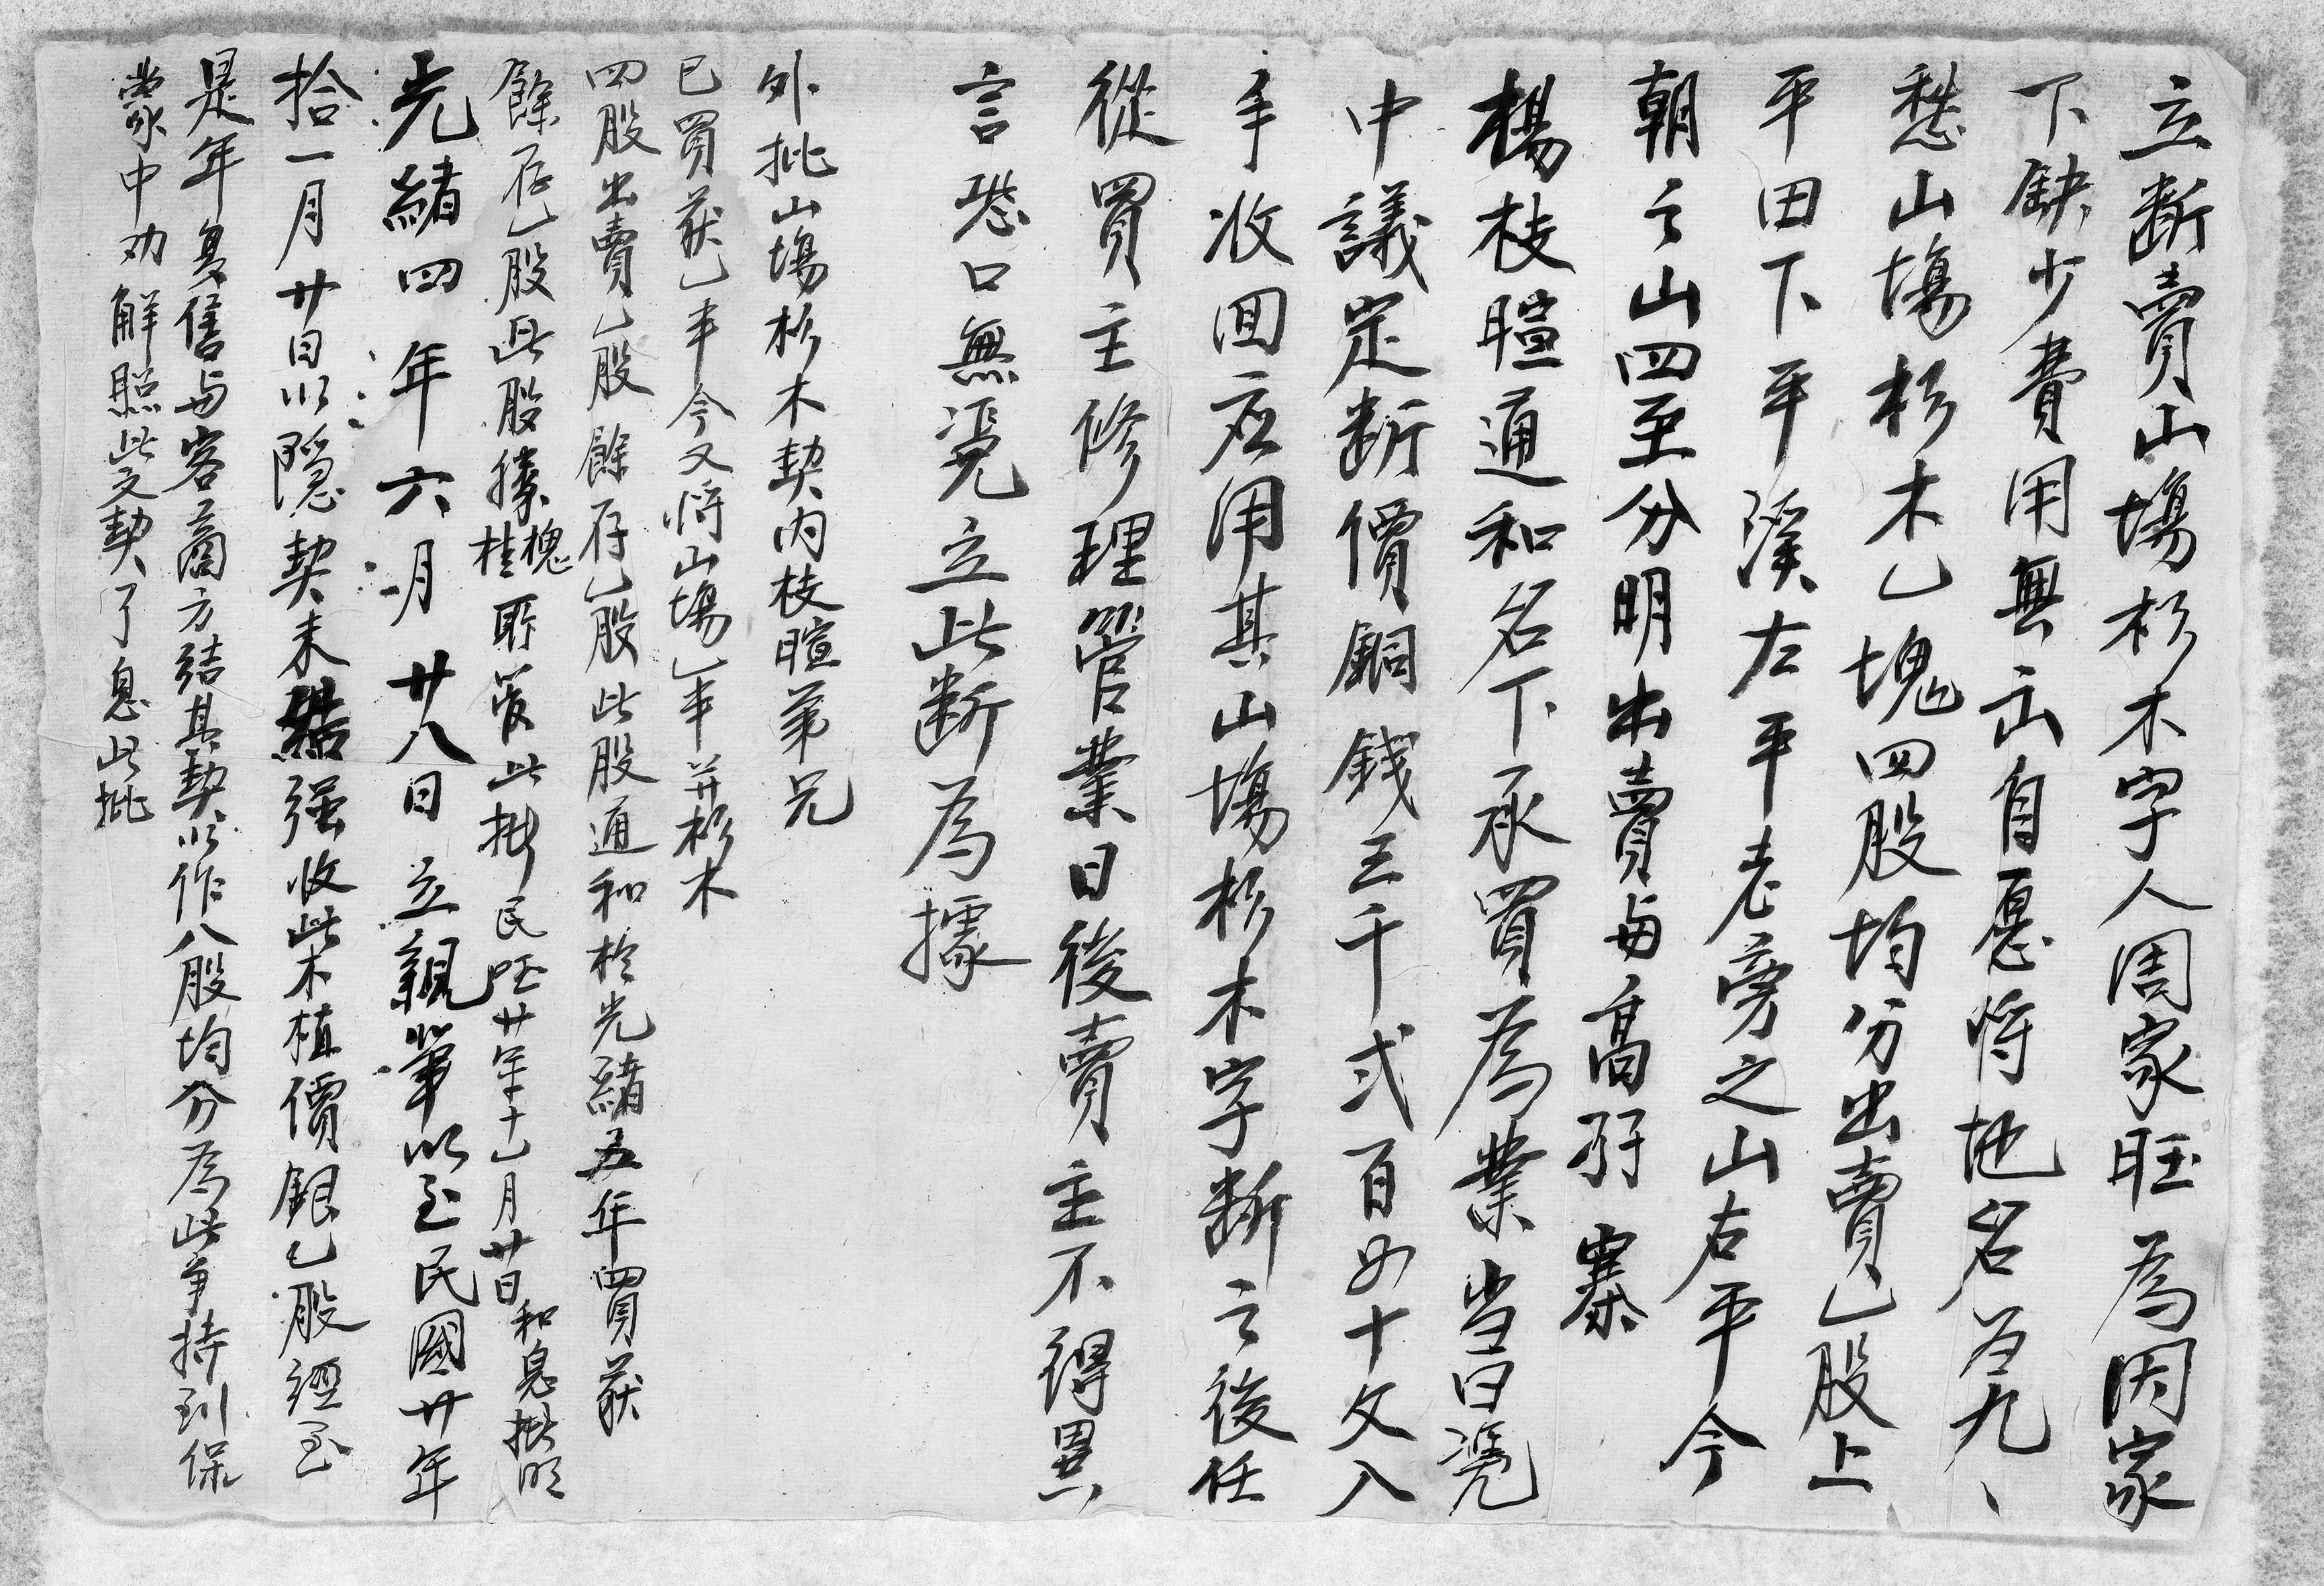 立断賣山塲杉木字人周家旺為因家
下缺少費用無出自愿将地名為九、
愁山塲杉木乚塊四股均分出賣乚股上
平田下平溪左平老旁之山右平今
朝之山四至分明出賣与髙孖寨
楊枝暄通和名下承買為業当日凴
中議定断價銅錢三千弍百四十文入
手收囬应用其山塲杉木字断之後任
從買主修理管業日後賣主不得異
言恐口無凴立此断為據
外批山塲杉木契内枝暄弟兄
已買获乚半今又将山塲乚半并杉木
四股出賣乚股餘存乚股此股通和於光緒五年買获
餘存乚股此股榛槐桂所管此批民囯廿年十乚月廿日和息批明
光緒四年六月廿八日立親筆以至民國廿年
拾一月廿日以隱契未結强收此木植價銀乚股經至
是年复售与客啇方結其契以作八股均分為此争持到保
蒙中劝解照此文契了息此批